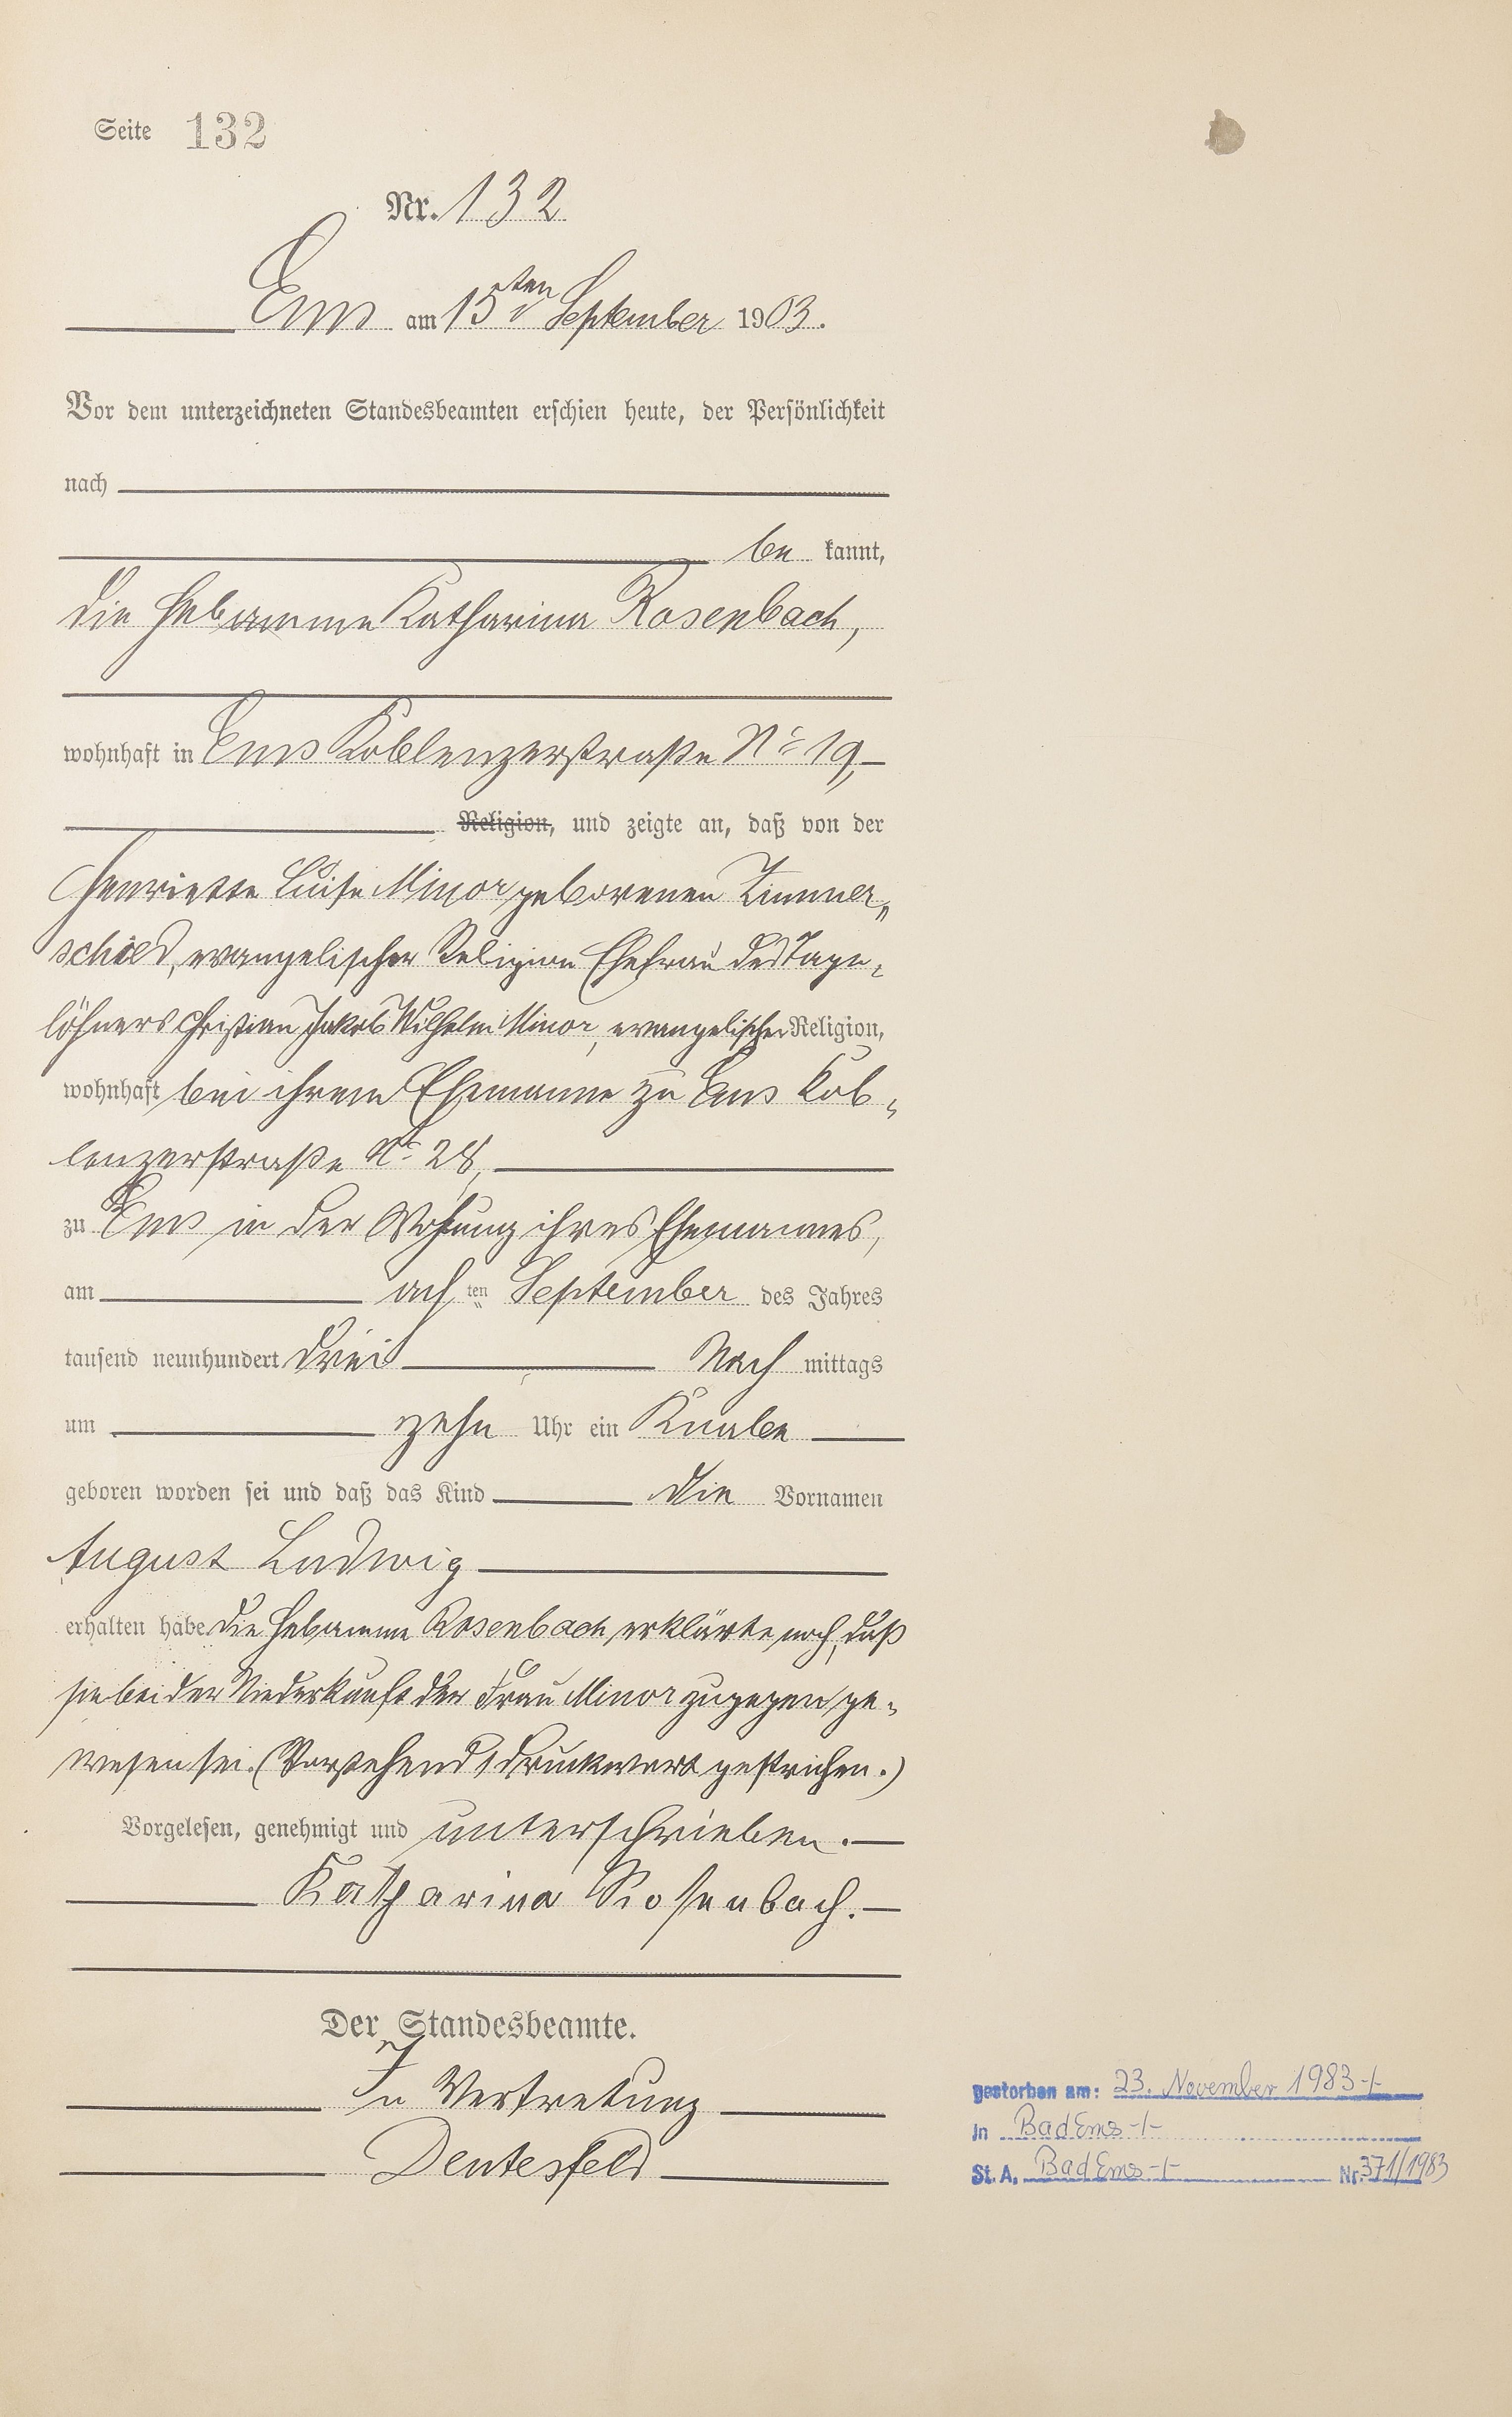 Seite 132
Nr. 132
Ems am 15ten September 1903.
Vor dem unterzeichneten Standesbeamten erschien heute, der Persönlichkeit
nach
be kannt,
die Hebamme Katharina Rosenbach,
wohnhaft in Ems Koblenzerstraße No 19,
Religion, und zeigte an, daß von der
Henriette Luise Minor geborenen Zimmer„
schied, evangelischer Religion Ehefrau des Tage„
löhners Christian Jakob Wilhelm Minor, evangelischer Religion,
wohnhaft bei ihrem Ehemanne zu Ems Kob„
lenzerstraße No 28,
zu Ems in der Wohung ihres Ehemannes,
am acht ten September des Jahres
tausend neunhundert drei Nach mittags
um zehn Uhr ein Knabe
geboren worden sei und daß das Kind die Vornamen
August Ludwig
erhalten habe. Die Hebamme Rosenbach erklärte noch, daß
sie bei der Niederkunft der Frau Minor zugegen ge„
wesen sei. (Vorstehend 1 Druckwort gestrichen.)
Vorgelesen, genehmigt und unterschrieben.
Katharina Rosenbach.
Der Standesbeamte.
In Vertretung
Deutesfeld
gestorben am: 23. November 1983 -/-
in Bad Ems -/-
St. A. Bad Ems -/- Nr. 371/1983